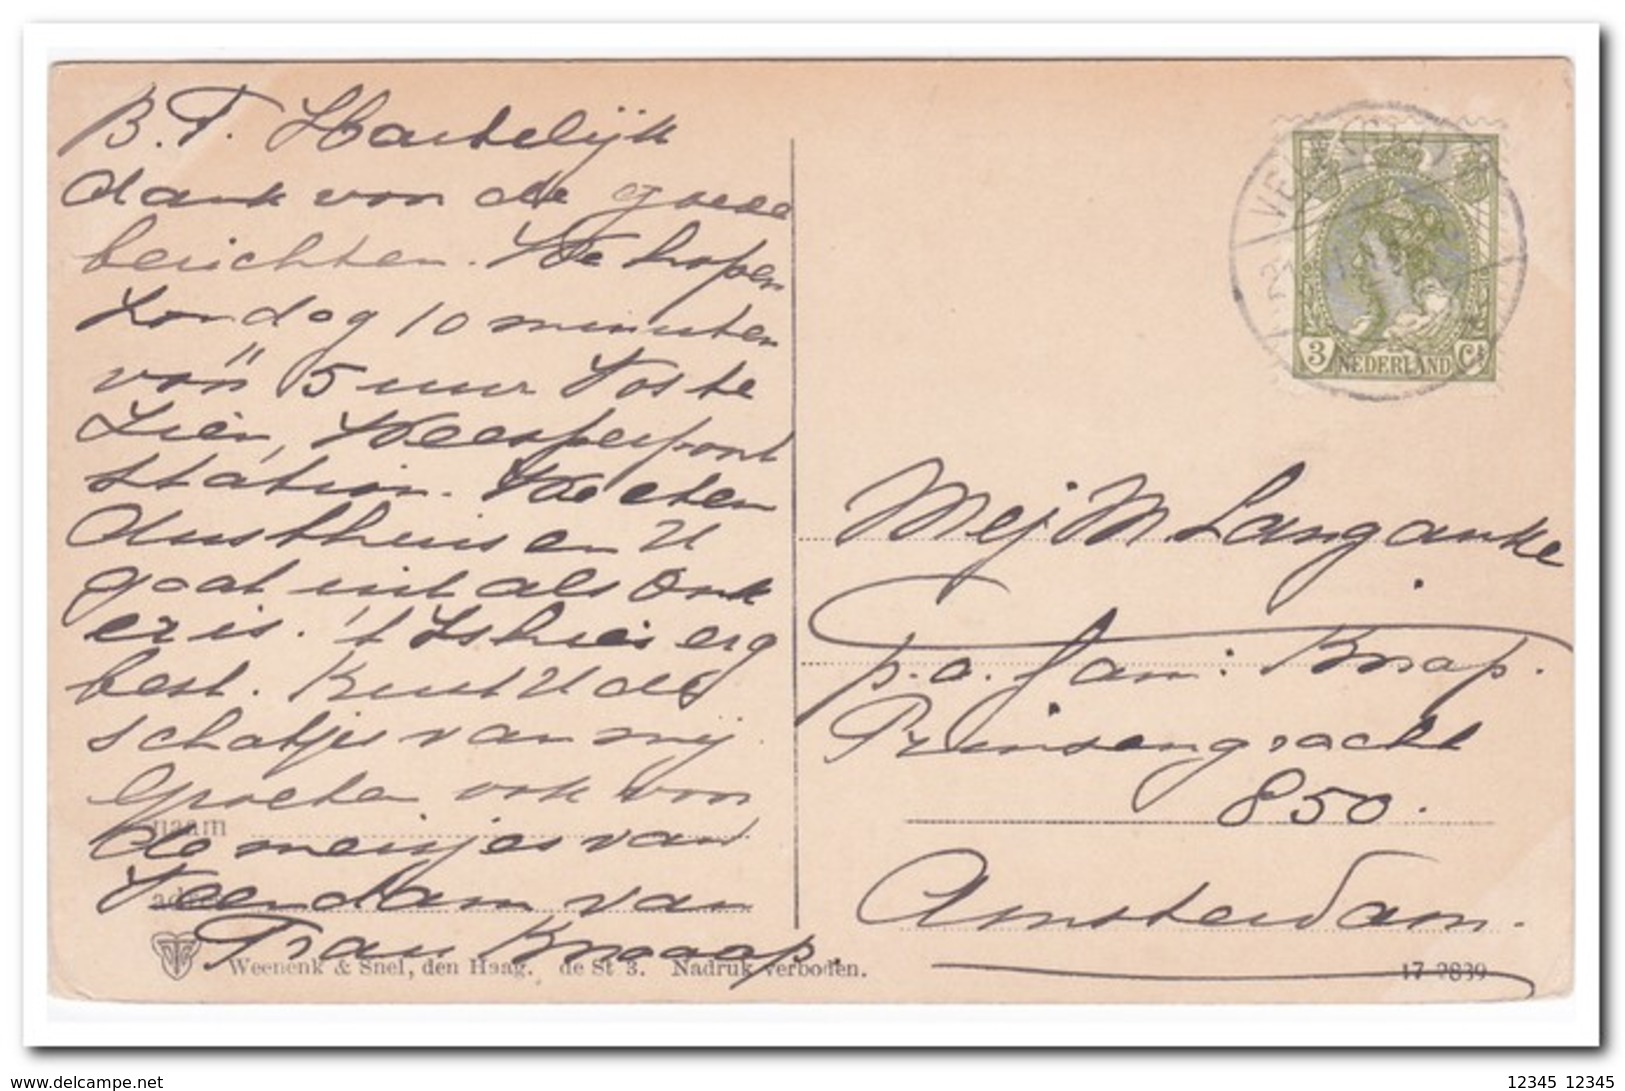 B.T. Hartelijk
dank voor de goede
berichten. We hopen
Zondag 10 minuten
voor 5 uur Tos te
Zien, Weesperpoort
station. We eten
dusthuis en U
gaat uit als Onk
er is. 't IJshuis erg
best. Kunt U de
schatjes van mij
groeten ook voor
de meisjes van
Veendam van
Frau Knaap.
naam
adres
Weenenk & Snel, den Haag. de St 3. Nadruk verboden.
3 NEDERLAND Ct
Mej M Langanke
p.a. fam: Knap.
Prinsengracht
850.
Amsterdam.
17 2839
delcampe.net
12345 12345